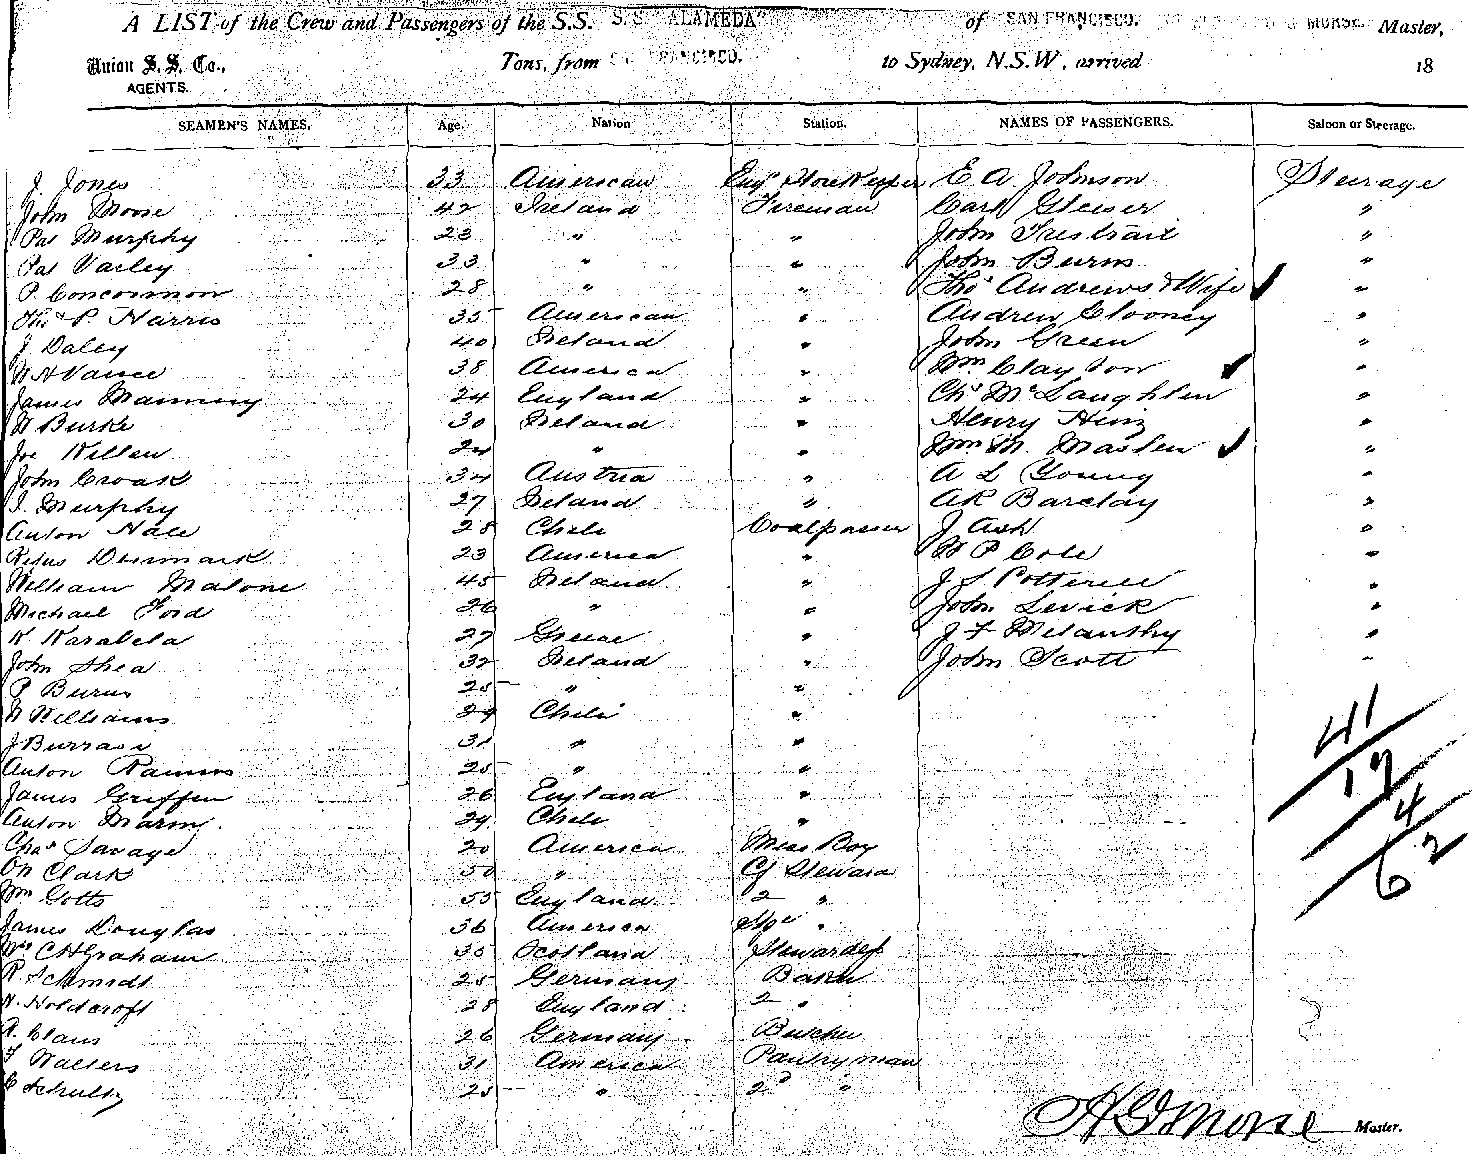 A LIST of the Crew and Passengers of the S.S. S.S. "ALAMEDA" of SAN FRANCISCO. MORSE. Master,
Union S. S. Co., AGENTS. Tons, from SAN FRANCISCO. to Sydney, N.S.W., arrived 18
SEAMEN'S NAMES. Age. Nation Station. NAMES OF PASSENGERS. Saloon or Steerage.
J. Jones 33 American Engr Storekeeper E A Johnson Steerage
John Moore 42 Ireland Fireman Carl Gleiser "
Pat Murphy 23 " " John Trestrail "
Pat Varley 33 " " John Burns "
P. Concannon 28 " " Thos Andrews & Wife "
Thos P. Harris 35 American " Andrew Clooney "
J Daley 40 Ireland " John Green "
W H Vance 38 America " Wm Clayton "
James Manning 24 England " Chs McLaughlin "
W Burke 30 Ireland " Henry Heinz "
Joe Killen 24 " " Wm M. Maslen "
John Croak 34 Austria " A L Young "
J. Murphy 27 Ireland " A R Barclay "
Anton Hale 28 Chili Coalpasser J Ash "
Rufus Denmark 23 America " W P Cole "
William Malone 45 Ireland " J S Potterell "
Michael Ford 26 " " John Levick "
K Karabela 27 Greece " J F Melanthy "
John Shea 32 Ireland " John Scott "
P Burns 25 " "
W Williams 29 Chili "
J Burrass 31 " "
Anton Ramos 25 " "
James Griffen 26 England "
Anton Marin 29 Chili "
Chas Savage 20 America Mess Boy
Clark 50 " Cf Steward
Wm Gotts 55 England 2 "
James Douglas 36 America "
Mrs C H Graham 35 Scotland Stewardess
R. Schmidt 25 Germany Baker
H. Holdcroft 28 England 2 "
A. Claus 26 Germany Butcher
F Walters 31 America Pantryman
C Schultz 25 " 2d "
41
17
4
62
H G Morse Master.